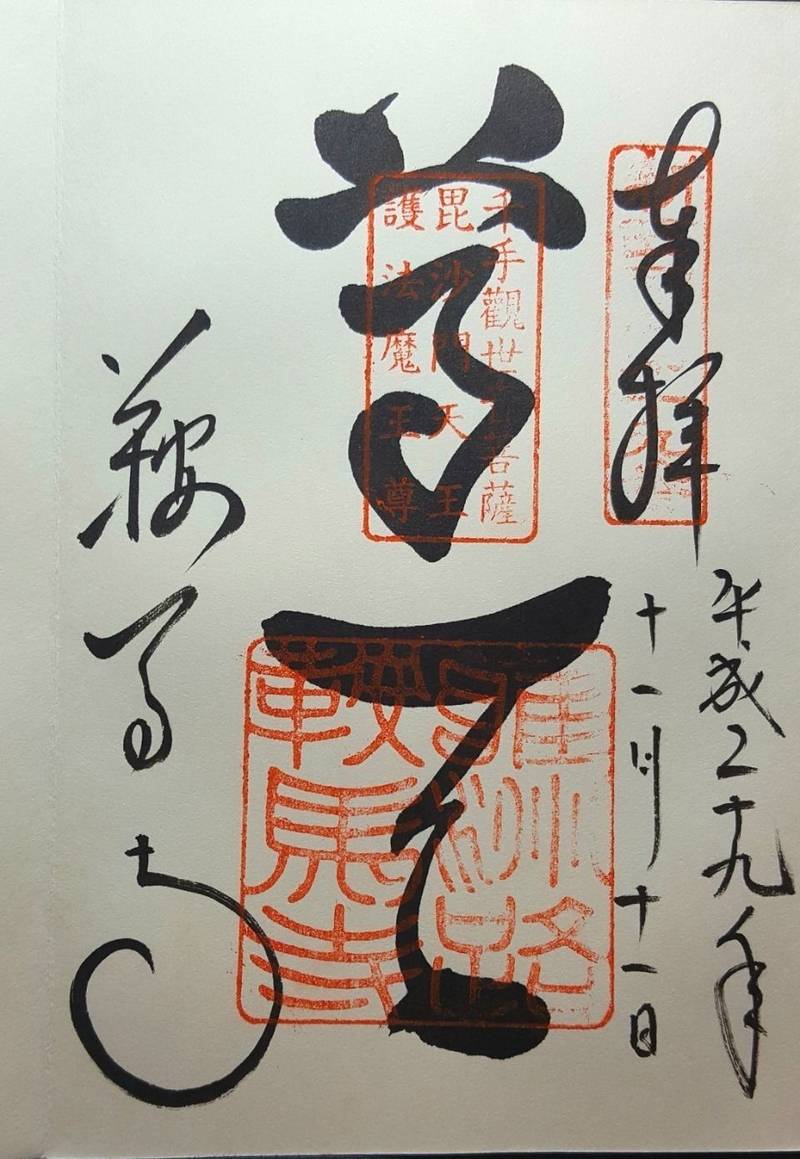 奉拝
平成二十九年
十一月十一日
尊天
千手觀世音菩薩
毘沙門天王
護法魔王尊
雍州路
鞍馬寺
鞍馬寺